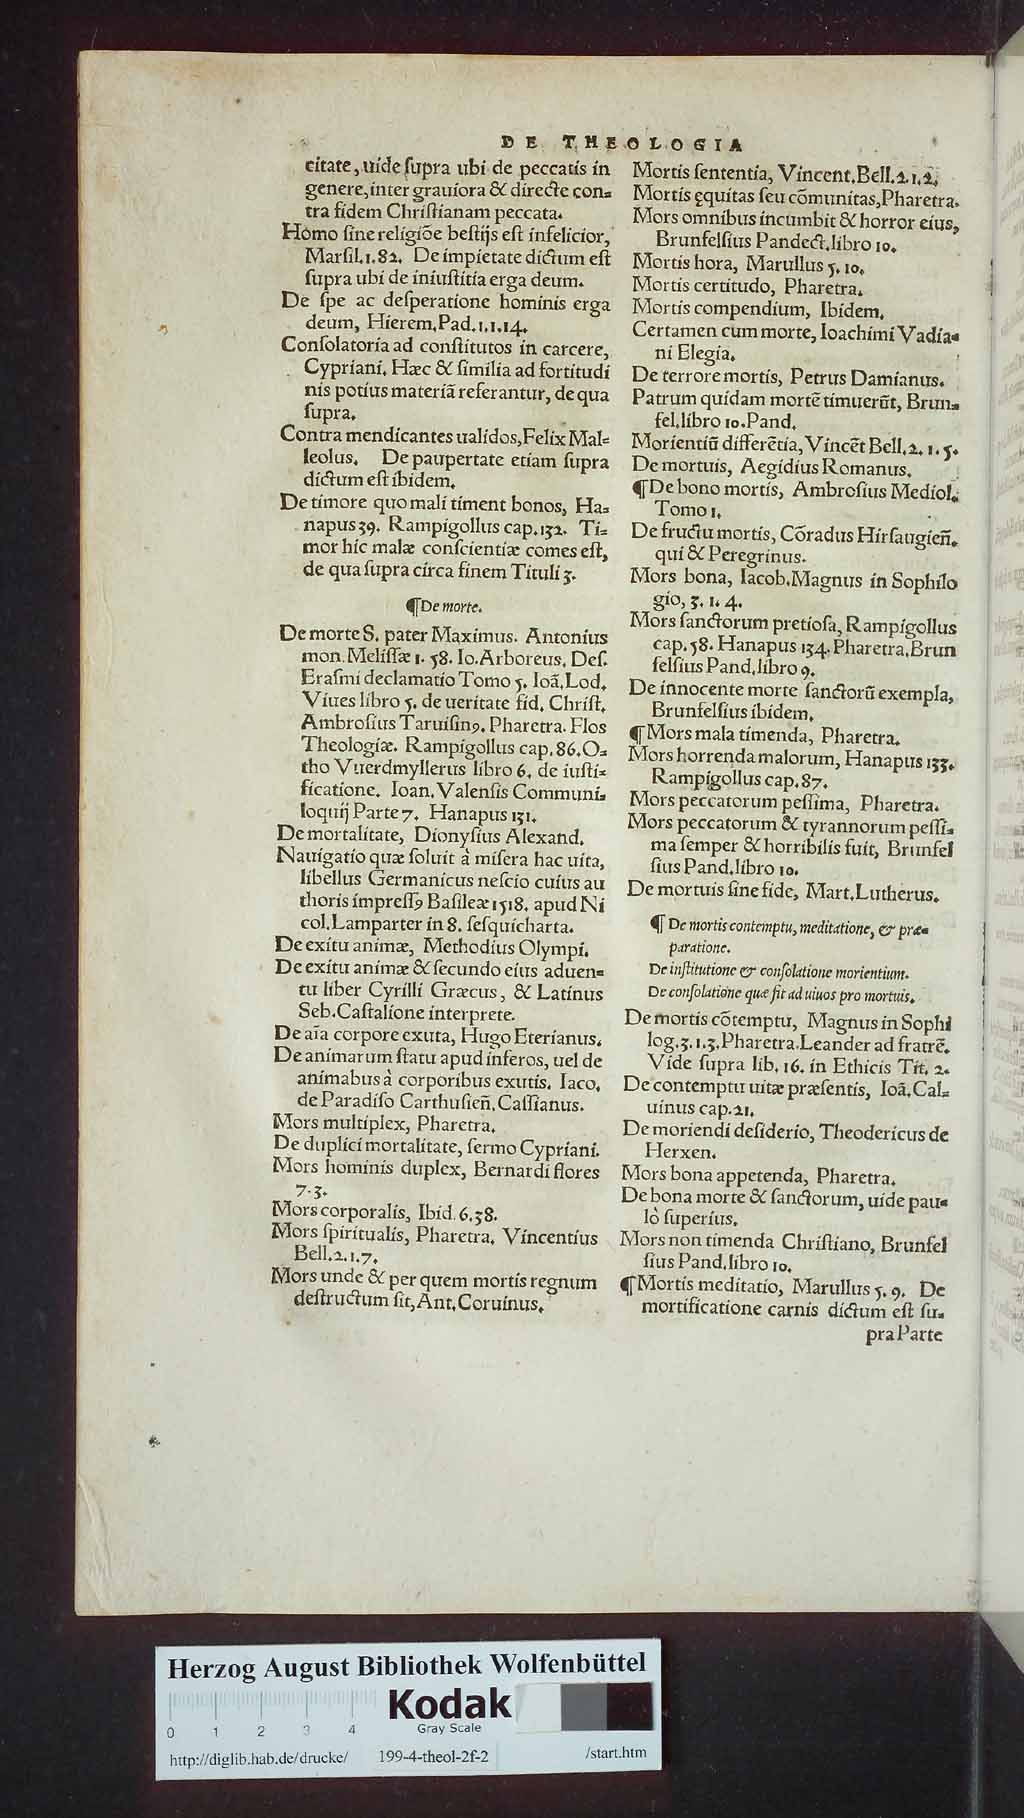 DE THEOLOGIA
citate, uide ſupra ubi de peccatis in
genere, inter grauiora & directe con-
tra fidem Chriſtianam peccata.
Homo ſine religiõe beſtijs eſt infelicior,
Marſil. 1. 82. De impietate dictum eſt
ſupra ubi de iniuſtitia erga deum.
De ſpe ac deſperatione hominis erga
deum, Hierem. Pad. 1. 1. 14.
Conſolatoria ad conſtitutos in carcere,
Cypriani. Hæc & ſimilia ad fortitudi
nis potius materiã referantur, de qua
ſupra.
Contra mendicantes ualidos, Felix Mal-
leolus. De paupertate etiam ſupra
dictum eſt ibidem.
De timore quo mali timent bonos, Ha-
napus 39. Rampigollus cap. 132. Ti-
mor hic malæ conſcientiæ comes eſt,
de qua ſupra circa finem Tituli 3.
¶ De morte.
De morte S. pater Maximus. Antonius
mon. Meliſſæ 1. 58. Io. Arboreus. Deſ.
Eraſmi declamatio Tomo 5. Ioã. Lod.
Viues libro 5. de ueritate fid. Chriſt.
Ambroſius Taruiſinꝰ. Pharetra. Flos
Theologiæ. Rampigollus cap. 86. O-
tho Vuerdmyllerus libro 6. de iuſti-
ficatione. Ioan. Valenſis Communi-
loquij Parte 7. Hanapus 131.
De mortalitate, Dionyſius Alexand.
Nauigatio quæ ſoluit à miſera hac uita,
libellus Germanicus neſcio cuius au
thoris impreſſꝰ Baſileæ 1518. apud Ni
col. Lamparter in 8. ſeſquicharta.
De exitu animæ, Methodius Olympi.
De exitu animæ & ſecundo eius aduen-
tu liber Cyrilli Græcus, & Latinus
Seb. Caſtalione interprete.
De aĩa corpore exuta, Hugo Eterianus.
De animarum ſtatu apud inferos, uel de
animabus à corporibus exutis. Iaco.
de Paradiſo Carthuſien̄. Caſſianus.
Mors multiplex, Pharetra.
De duplici mortalitate, ſermo Cypriani.
Mors hominis duplex, Bernardi flores
7. 3.
Mors corporalis, Ibid. 6. 38.
Mors ſpiritualis, Pharetra. Vincentius
Bell. 2. 1. 7.
Mors unde & per quem mortis regnum
deſtructum ſit, Ant. Coruinus.
Mortis ſententia, Vincent. Bell. 2. 1. 2.
Mortis ęquitas ſeu cõmunitas, Pharetra.
Mors omnibus incumbit & horror eius,
Brunfelſius Pandect. libro 10.
Mortis hora, Marullus 5. 10.
Mortis certitudo, Pharetra.
Mortis compendium, Ibidem.
Certamen cum morte, Ioachimi Vadia-
ni Elegia.
De terrore mortis, Petrus Damianus.
Patrum quidam mortẽ timuerũt, Brun-
fel. libro 10. Pand.
Morientiũ differẽtia, Vincẽt Bell. 2. 1. 5.
De mortuis, Aegidius Romanus.
¶ De bono mortis, Ambroſius Mediol.
Tomo 1.
De fructu mortis, Cõradus Hirſaugien̄.
qui & Peregrinus.
Mors bona, Iacob. Magnus in Sophilo
gio, 3. 1. 4.
Mors ſanctorum pretioſa, Rampigollus
cap. 58. Hanapus 134. Pharetra. Brun
felſius Pand. libro 9.
De innocente morte ſanctorũ exempla,
Brunfelſius ibidem.
¶ Mors mala timenda, Pharetra.
Mors horrenda malorum, Hanapus 133.
Rampigollus cap. 87.
Mors peccatorum peſſima, Pharetra.
Mors peccatorum & tyrannorum peſſi-
ma ſemper & horribilis fuit, Brunfel
ſius Pand. libro 10.
De mortuis ſine fide, Mart. Lutherus.
¶ De mortis contemptu, meditatione, & præ-
paratione.
De inſtitutione & conſolatione morientium.
De conſolatione quæ fit ad uiuos pro mortuis.
De mortis cõtemptu, Magnus in Sophi
log. 3. 1. 3. Pharetra. Leander ad fratrẽ.
Vide ſupra lib. 16. in Ethicis Tit. 2.
De contemptu uitæ præſentis, Ioã. Cal-
uinus cap. 21.
De moriendi deſiderio, Theodericus de
Herxen.
Mors bona appetenda, Pharetra.
De bona morte & ſanctorum, uide pau-
lò ſuperius.
Mors non timenda Chriſtiano, Brunfel
ſius Pand. libro 10.
¶ Mortis meditatio, Marullus 5. 9. De
mortificatione carnis dictum eſt ſu-
pra Parte
Herzog August Bibliothek Wolfenbüttel
Kodak
Gray Scale
0 1 2 3 4
http://diglib.hab.de/drucke/ 199-4-theol-2f-2 /start.htm